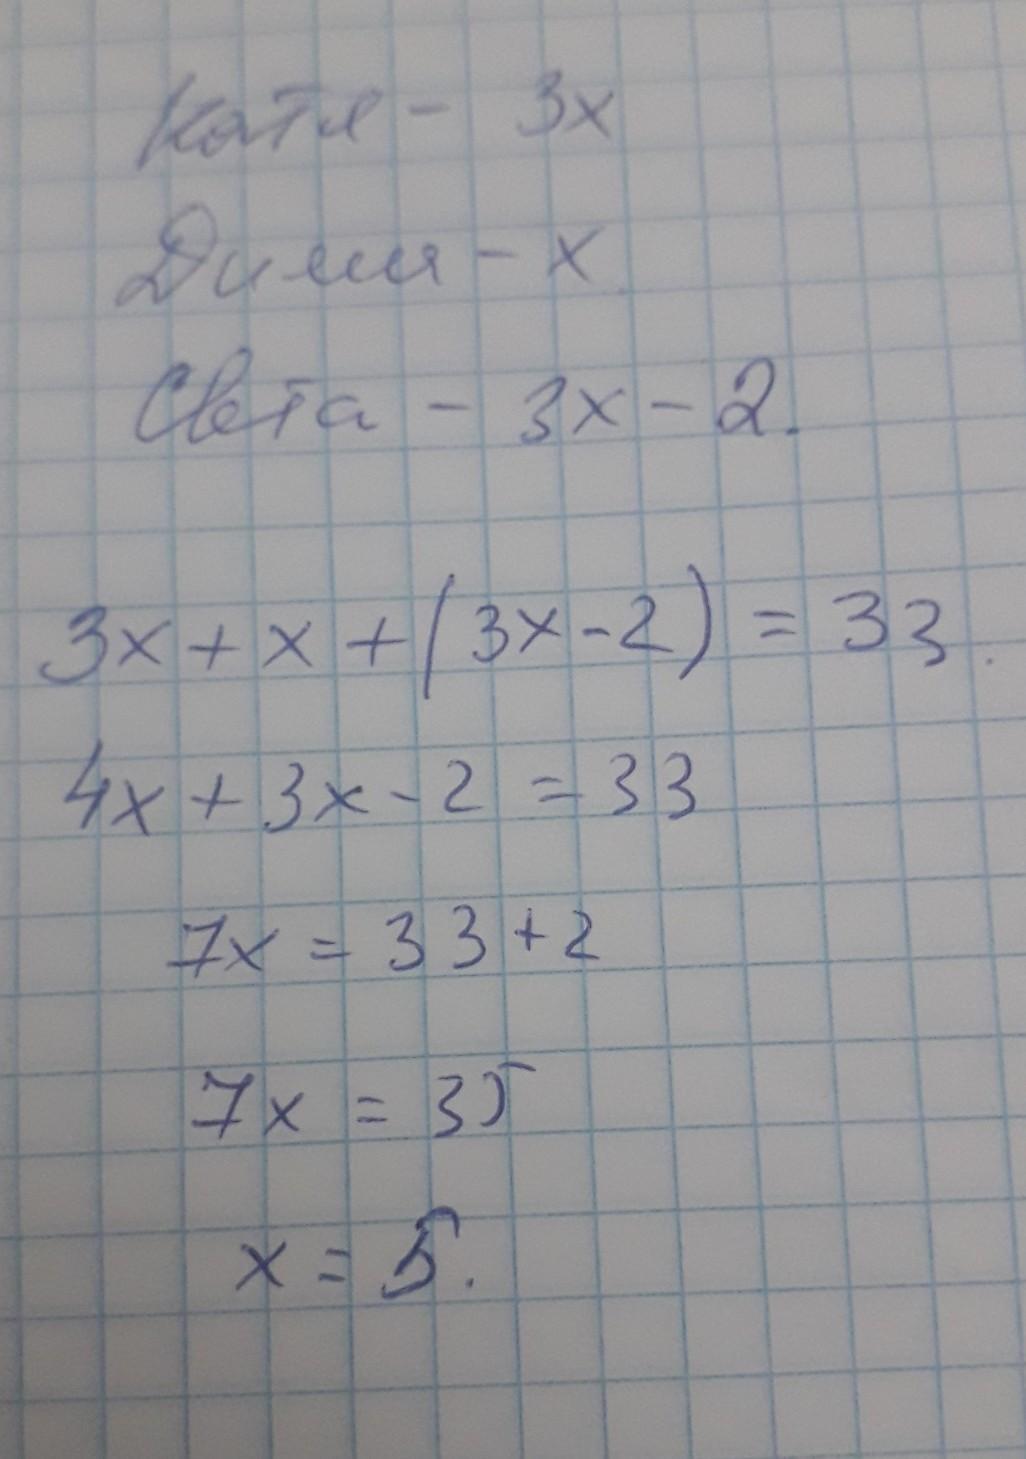 Катя - 3x
Дима - x
Света - 3x - 2.
3x + x + (3x - 2) = 33.
4x + 3x - 2 = 33
7x = 33 + 2
7x = 35
x = 5.